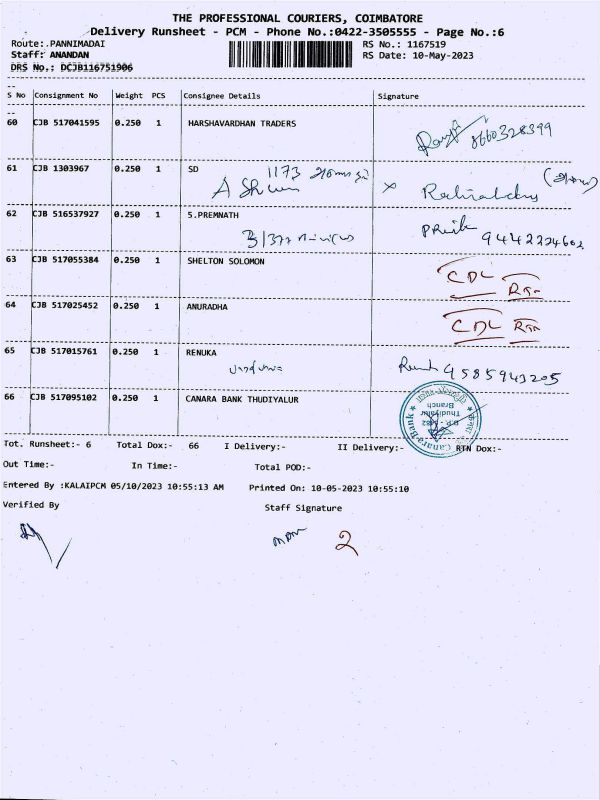 THE PROFESSIONAL COURIERS, COIMBATORE
Delivery Runsheet - PCM - Phone No.:0422-3505555 - Page No.:6
Route:.PANNIMADAI RS No.: 1167519
Staff: ANANDAN RS Date: 10-May-2023
DRS No.: DCJB116751906
S No Consignment No Weight PCS Consignee Details Signature
60 CJB 517041595 0.250 1 HARSHAVARDHAN TRADERS 8660328399
61 CJB 1303967 0.250 1 SD 1173
62 CJB 516537927 0.250 1 S.PREMNATH
3/377 9442224602
63 CJB 517055384 0.250 1 SHELTON SOLOMON CDL
RTN
64 CJB 517025452 0.250 1 ANURADHA CDL RTN
65 CJB 517015761 0.250 1 RENUKA 9585943205
66 CJB 517095102 0.250 1 CANARA BANK THUDIYALUR
Canara Bank
Thudiyalur
Branch
Tot. Runsheet:- 6 Total Dox:- 66 I Delivery:- II Delivery:- RTN Dox:-
Out Time:- In Time:- Total POD:-
Entered By :KALAIPCM 05/10/2023 10:55:13 AM Printed On: 10-05-2023 10:55:10
Verified By Staff Signature
2